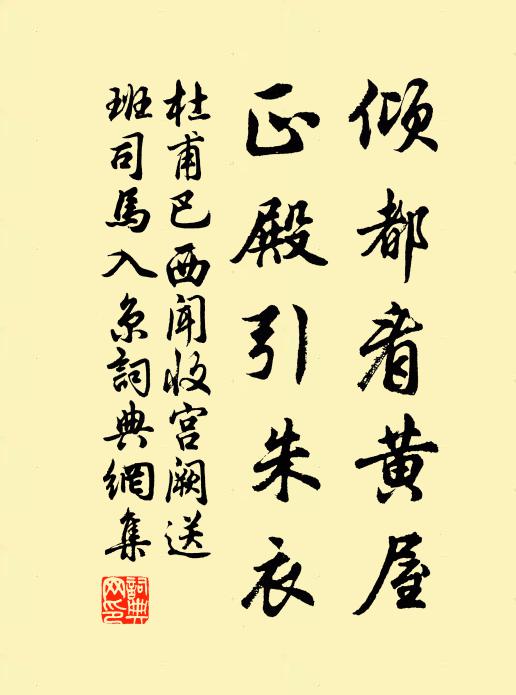 倾都看黄屋
正殿引朱衣
杜甫巴西闻收宫阙送
班司马入京詞典網集
詞典网印